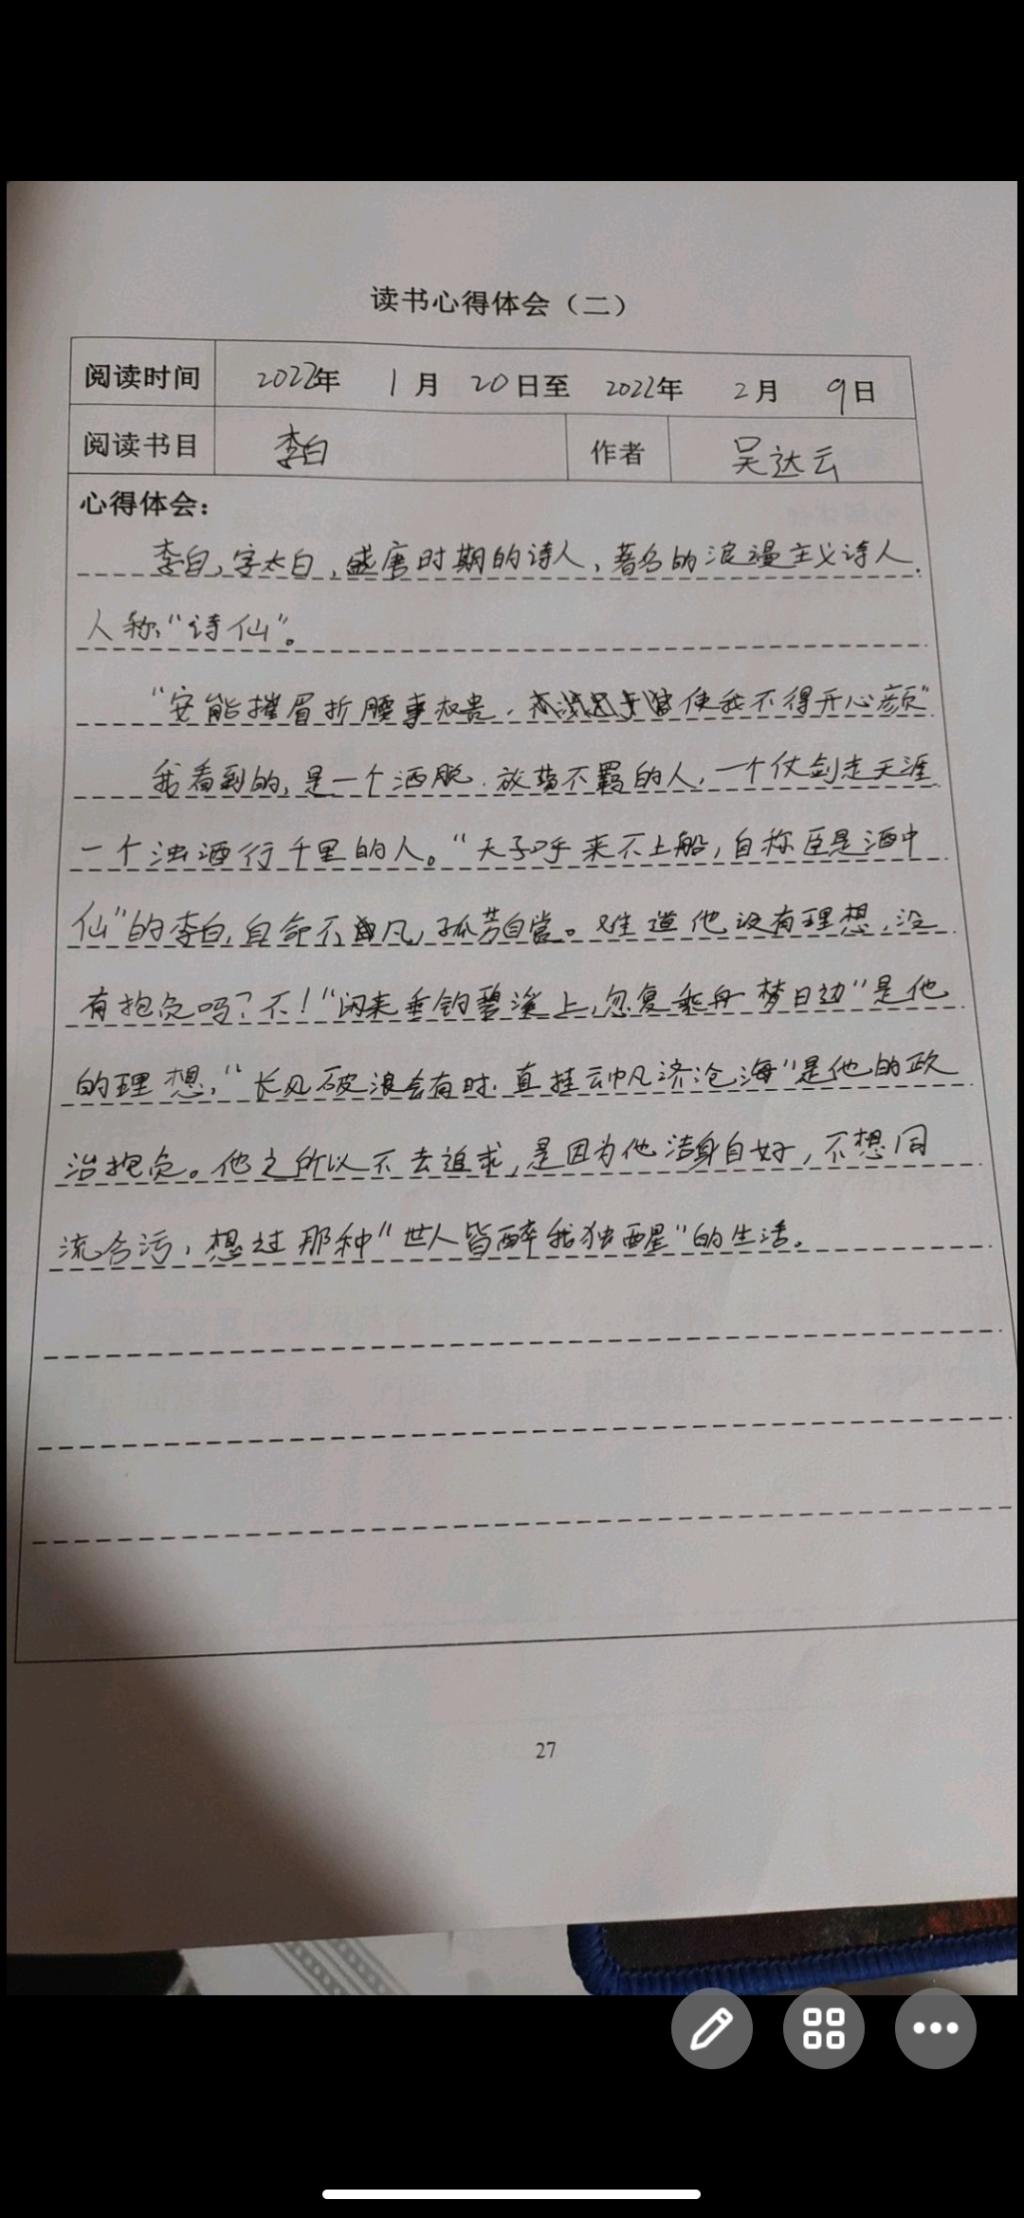 读书心得体会（二）
阅读时间 2022年 1月 20日至 2022年 2月 9日
阅读书目 李白 作者 吴达云
心得体会：
李白，字太白，盛唐时期的诗人，著名的浪漫主义诗人，
人称“诗仙”。
“安能摧眉折腰事权贵，使我不得开心颜”
我看到的，是一个洒脱．放荡不羁的人，一个仗剑走天涯
一个浊酒行千里的人。“天子呼来不上船，自称臣是酒中
仙”的李白，自命不凡，孤芳自赏。难道他没有理想，没
有抱负吗？不！“闲来垂钓碧溪上，忽复乘舟梦日边”是他
的理想，“长风破浪会有时．直挂云帆济沧海”是他的政
治抱负。他之所以不去追求，是因为他洁身自好，不想同
流合污，想过那种“世人皆醉我独醒”的生活。
27